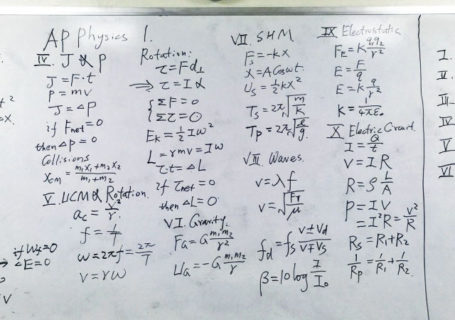 AP Physics 1.
IV. J & P
J = F·t
P = mv
J = ΔP
if Fnet = 0
then ΔP = 0
Collisions
Xcm = (m₁x₁+m₂x₂)/(m₁+m₂)
V. UCM & Rotation.
ac = v²/r
f = 1/T
ω = 2πf = 2π/T
v = rω
if Wf = 0
→ ΔE = 0
Rotation:
τ = Fd⊥
⇒ τ = Iα
{ΣF = 0
{Στ = 0
EK = ½Iω²
L = rmv = Iω
τ·t = ΔL
if τnet = 0
then ΔL = 0
VI. Gravity.
FG = G m₁m₂/r²
UG = -G m₁m₂/r
VII. SHM
Fs = -kx
X = A cos ωt
Us = ½kx²
Ts = 2π√(m/k)
Tp = 2π√(ℓ/g)
VIII Waves.
v = λf
v = √(FT/μ)
fd = fs (v±vd)/(v∓vs)
β = 10 log I/I₀
IX Electrostatic
FE = K q₁q₂/r²
E = F/q
E = K q/r²
K = 1/4πε₀
X Electric Circuit.
I = Q/t
V = IR
R = ρ L/A
P = IV
= I²R = V²/R
Rs = R₁ + R₂
1/Rp = 1/R₁ + 1/R₂
I.
II
IV
V
VI